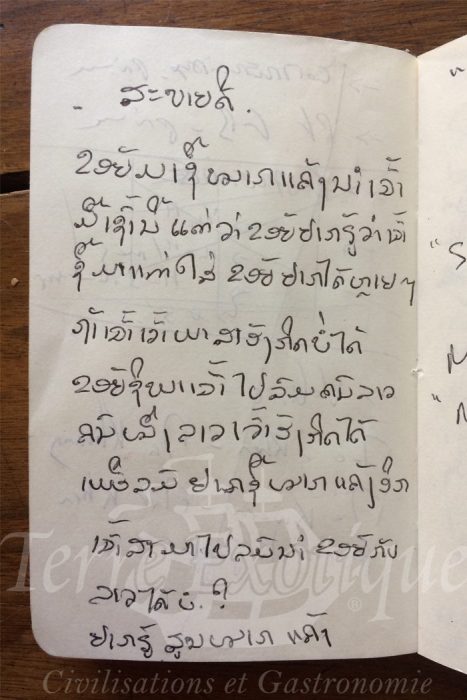 ສະບາຍດີ.
ຂອຍມາຊື້ໝາກແຄ້ງນຳເຈົ້າ
ມື້ເຊົ້ານີ້ ແຕ່ວ່າ ຂອຍຢາກຮູ້ວ່າເຈົ້າ
ຊື້ມາແຕ່ໃສ່ ຂອຍຢາກໄດ້ຫຼາຍໆ
ຖ້າເຈົ້າເວົ້າພາສາອັງກິດບໍ່ໄດ້
ຂອຍຊິພາເຈົ້າໄປລົມຄົນລາວ
ຄົນໜຶ່ງ ລາວເວົ້າອັງກິດໄດ້
ຢາກຊື້ໝາກແຄ້ງອີກ
ເຈົ້າສາມາໄປລົມນຳ ຂອຍກັບ
ລາວໄດ້ບໍ.?
ຢາກຮູ້ ໝາກ ແຄ້ງ
Terre Exotique ®
Civilisations et Gastronomie